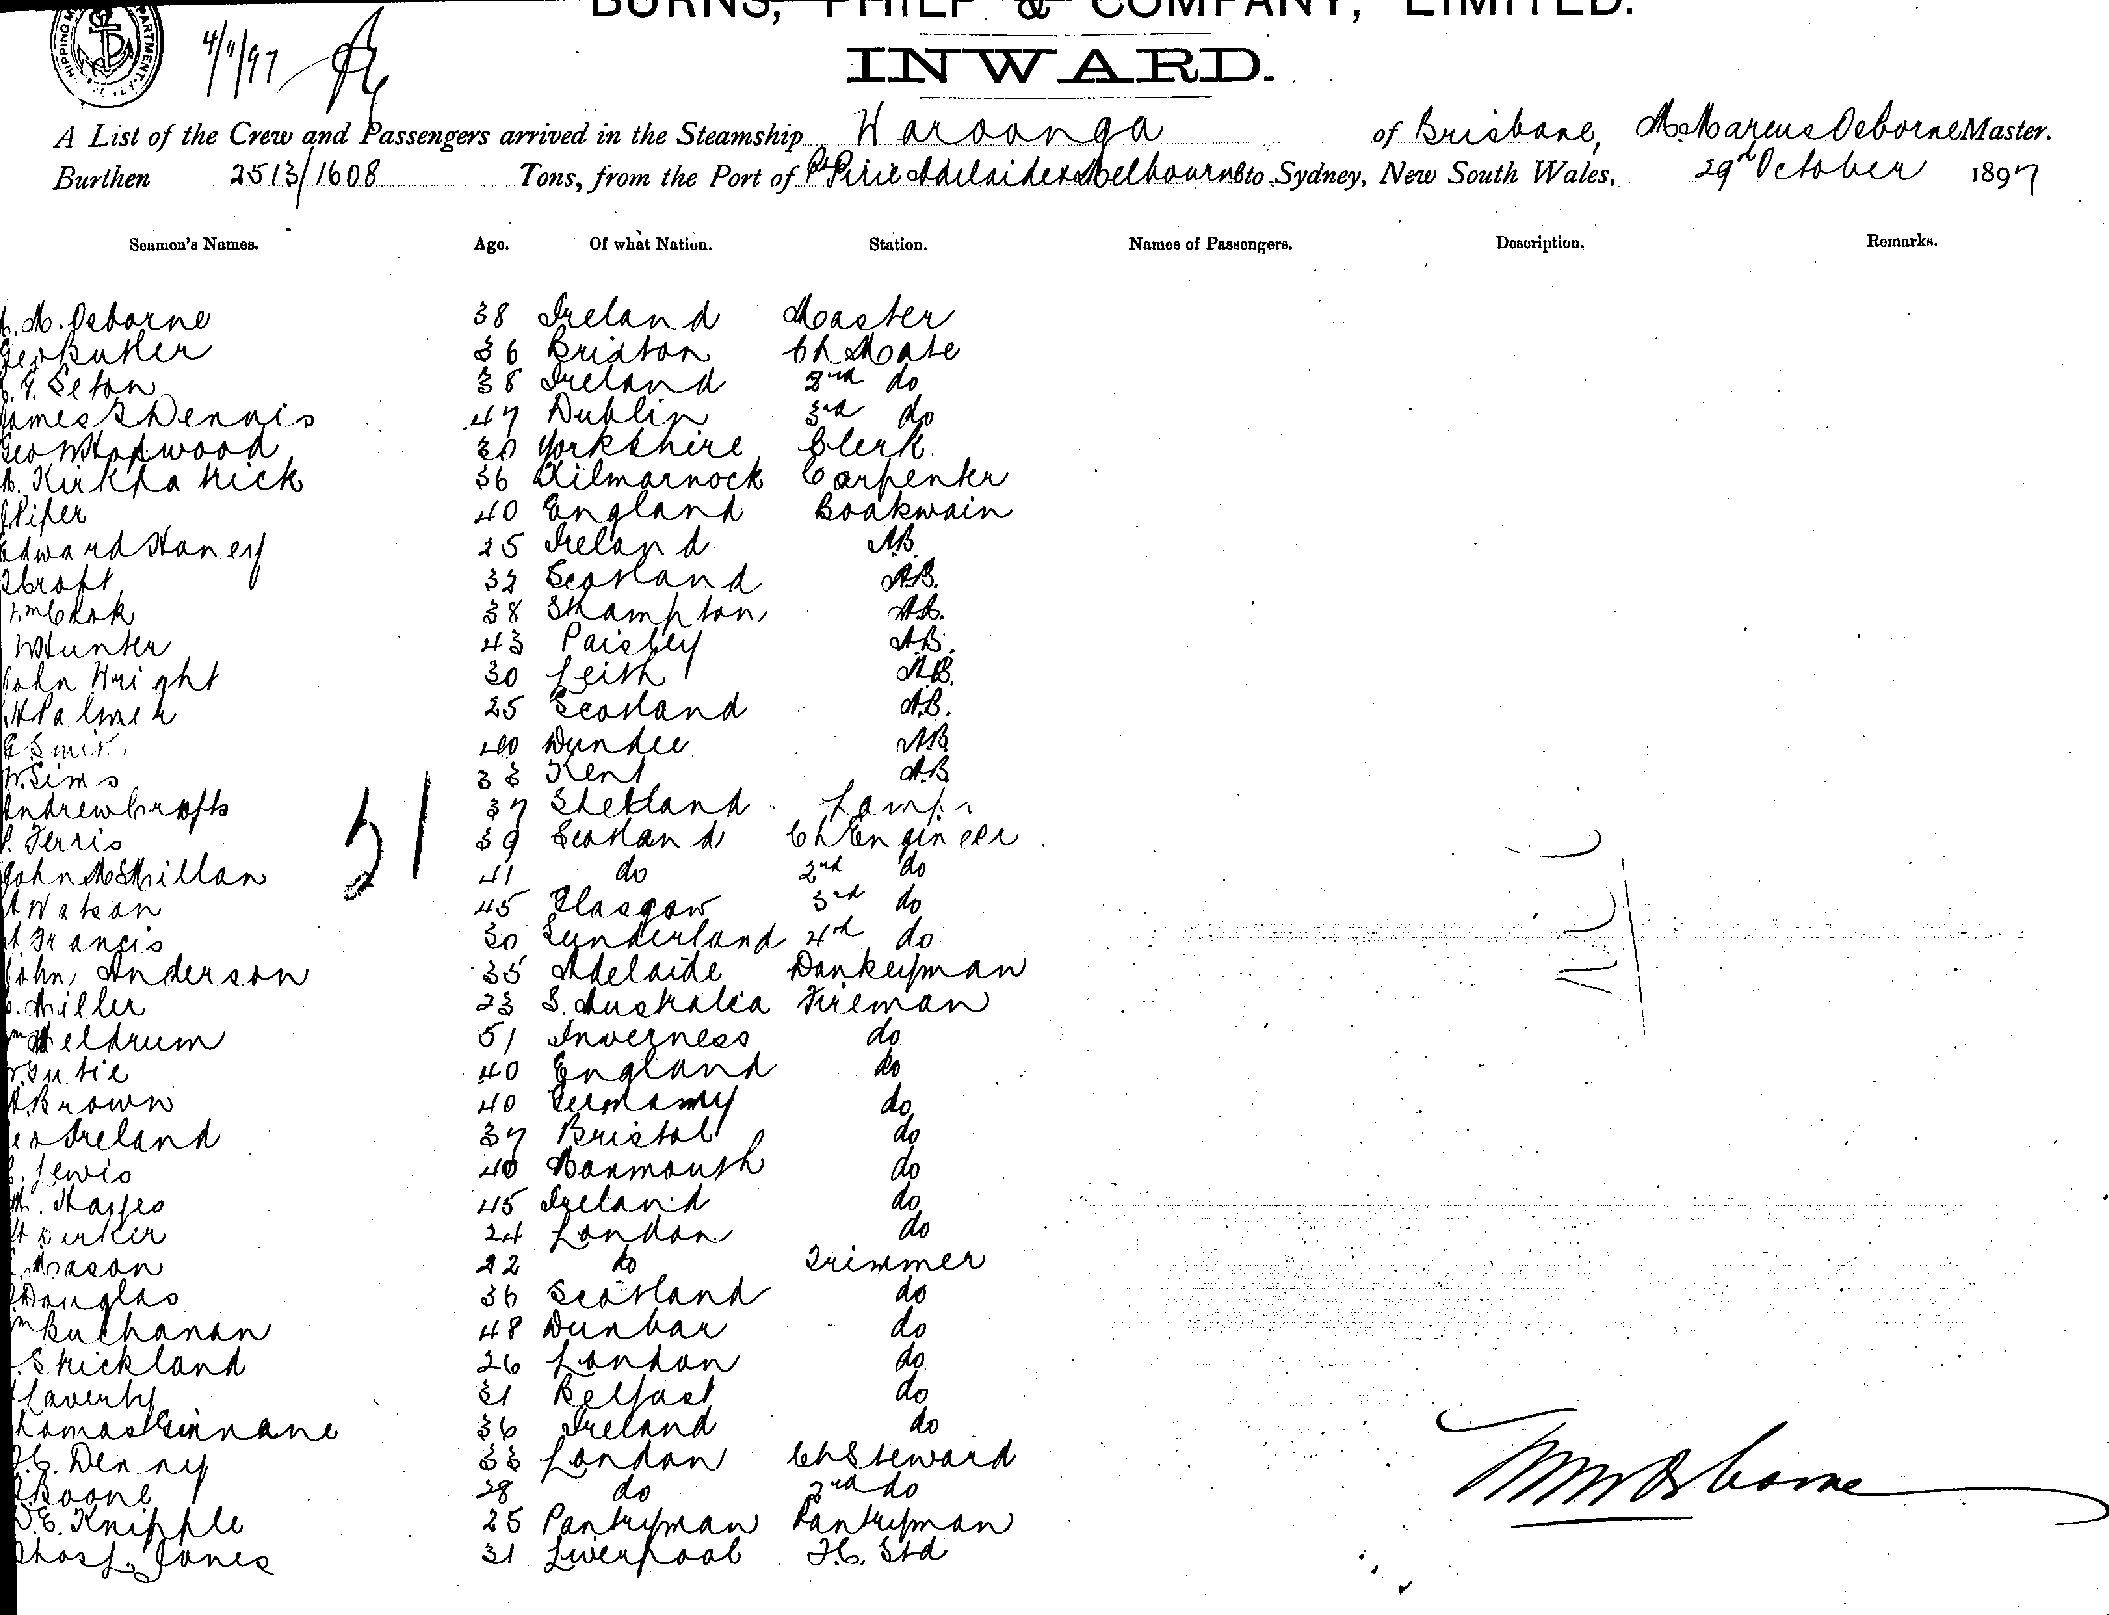 BURNS, PHILP & COMPANY, LIMITED.
4/11/97
INWARD.
A List of the Crew and Passengers arrived in the Steamship Waroonga of Brisbane, M. Marcus Osborne Master.
Burthen 2513/1608 Tons, from the Port of Pt Pirie Adelaide & Melbourne to Sydney, New South Wales, 29th October 1897
Seamen's Names. Age. Of what Nation. Station. Names of Passengers. Description. Remarks.
M. Osborne 38 Ireland Master
Geo Butler 36 Brixton Ch Mate
Seton 38 Ireland 2nd do
James Dennis 47 Dublin 3rd do
Geo 30 Yorkshire Clerk
Kirkpatrick 36 Kilmarnock Carpenter
Piper 40 England Boatswain
Edward Haney 25 Ireland AB
Croft 32 Scotland AB.
Wm Cook 38 Sthampton AB.
W Hunter 43 Paisley AB.
John Wright 30 Leith AB.
H Palmer 25 Scotland AB.
40 Dundee AB
W. Sims 33 Kent AB
Andrew Crafts 37 Shetland Lamps
Ferris 39 Scotland Ch Engineer
51
John McMillan 41 do 2nd do
Watson 45 Glasgow 3rd do
Francis 30 Sunderland 4th do
John Anderson 35 Adelaide Donkeyman
Miller 23 S. Australia Fireman
Wm Meldrum 51 Inverness do
40 England do
Brown 40 Germany do
Geo Ireland 37 Bristol do
Lewis 40 Monmouth do
Hayes 45 Ireland do
24 London do
Mason 22 do Trimmer
Douglas 36 Scotland do
Wm Buchanan 48 Dunbar do
Strickland 26 London do
Laverty 31 Belfast do
Thomas Ginnane 36 Ireland do
Denny 33 London Ch Steward
Boone 28 do 2nd do
E. Knipple 25 Pantryman Pantryman
Thos L. Jones 31 Liverpool F.C. Std
Nil
M M Osborne